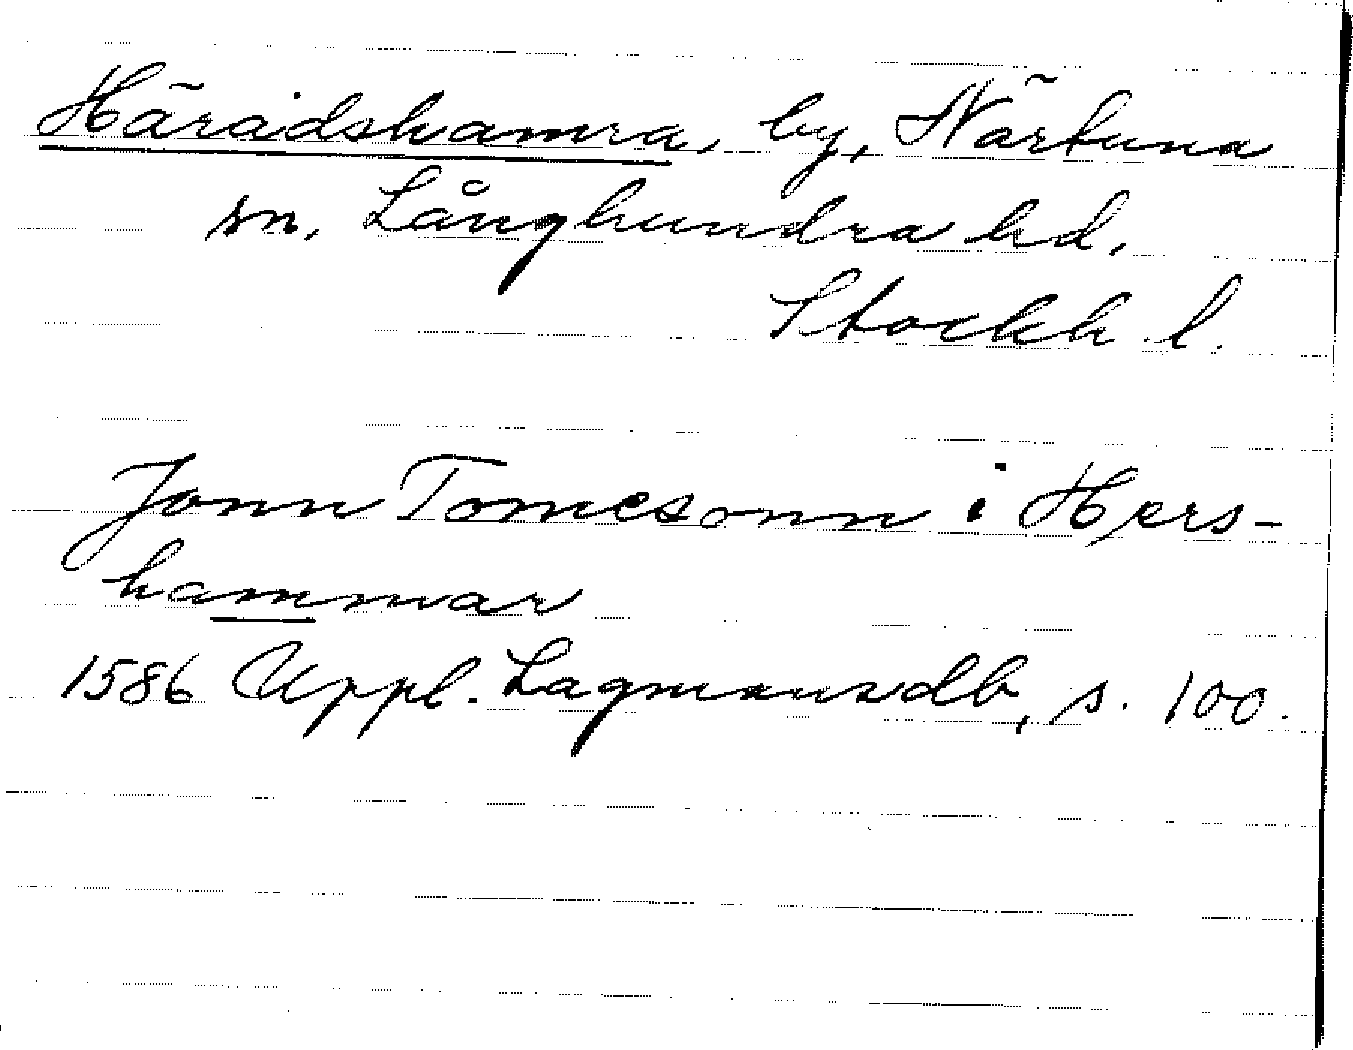 Häradshamra, by, Närtuna
sn, Långhundra hd.
Stockh l.
Jonn Tomesonn i Hers-
hammar
1586 Uppl. Lagmansdb, s. 100.